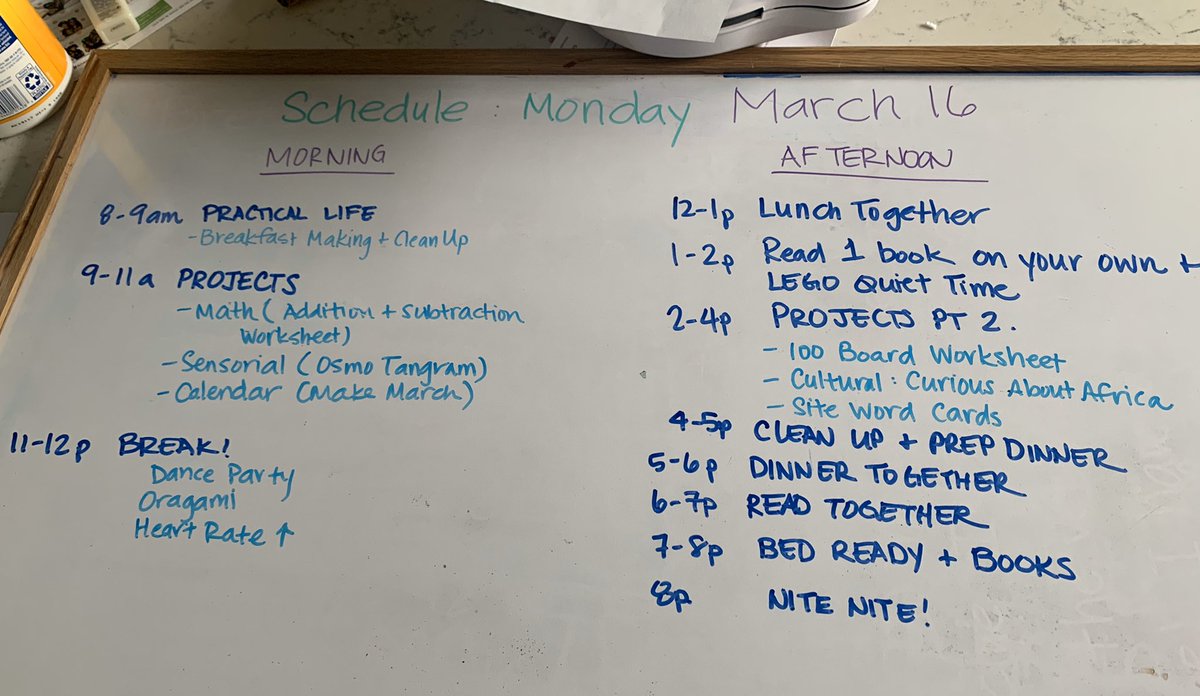 Schedule : Monday March 16
MORNING
8-9am PRACTICAL LIFE
- Breakfast Making + Clean Up
9-11a PROJECTS
- Math ( Addition + Subtraction
Worksheet)
- Sensorial (Osmo Tangram)
- Calendar (Make March)
11-12p BREAK!
Dance Party
Oragami
Heart Rate ↑
AFTERNOON
12-1p Lunch Together
1-2p Read 1 book on your own +
LEGO Quiet Time
2-4p PROJECTS PT 2.
- 100 Board Worksheet
- Cultural : Curious About Africa
- Site Word Cards
4-5p CLEAN UP + PREP DINNER
5-6p DINNER TOGETHER
6-7p READ TOGETHER
7-8p BED READY + BOOKS
8p NITE NITE!